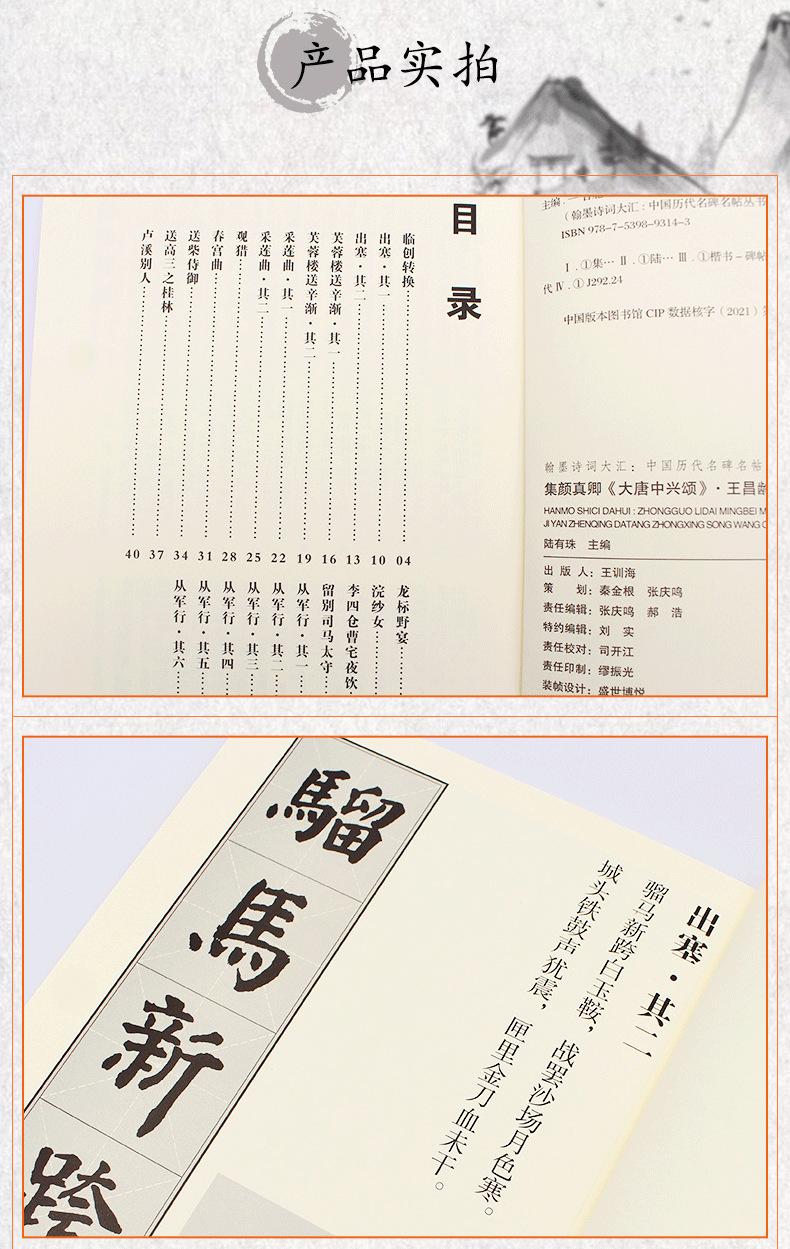 产品实拍
目录
临创转换……04
出塞·其一……10
出塞·其二……13
芙蓉楼送辛渐·其一……16
芙蓉楼送辛渐·其二……19
采莲曲·其一……22
采莲曲·其二……25
观猎……28
春宫曲……31
送柴侍御……34
送高三之桂林……37
卢溪别人……40
龙标野宴……
浣纱女……
李四仓曹宅夜饮…
留别司马太守…
从军行·其一…
从军行·其二…
从军行·其三…
从军行·其四…
从军行·其五…
从军行·其六…
主编.
（翰墨诗词大汇：中国历代名碑名帖丛书
ISBN 978-7-5398-9314-3
Ⅰ.①集… Ⅱ.①陆… Ⅲ.①楷书－碑帖
代Ⅳ.①J292.24
中国版本图书馆CIP数据核字（2021）第
翰墨诗词大汇：中国历代名碑名帖
集颜真卿《大唐中兴颂》·王昌龄
HANMO SHICI DAHUI : ZHONGGUO LIDAI MINGBEI M
JI YAN ZHENQING DATANG ZHONGXING SONG WANG C
陆有珠 主编
出版人：王训海
策划：秦金根 张庆鸣
责任编辑：张庆鸣 郝浩
特约编辑：刘实
责任校对：司开江
责任印制：缪振光
装帧设计：盛世博悦
出塞·其二
骝马新跨白玉鞍，战罢沙场月色寒。
城头铁鼓声犹震，匣里金刀血未干。
騮馬新跨